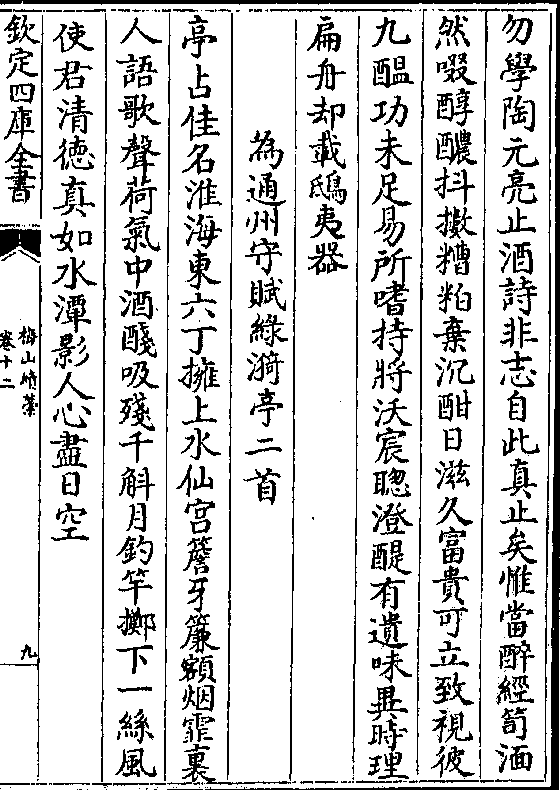 勿學陶元亮止酒詩非志自此真止矣惟當醉經笥湎
然啜醇醲抖擻糟粕棄沉酣日滋久富貴可立致視彼
九醖功未足易所嗜持將沃宸聰澄醍有遺味異時理
扁舟却載鴟夷器
為通州守賦綠漪亭二首
亭占佳名淮海東六丁擁上水仙宫簷牙簾額烟霏裏
人語歌聲荷氣中酒醆吸殘千斛月釣竿擲下一絲風
使君清德真如水潭影人心盡日空
欽定四庫全書
梅山續藁
卷十二
九